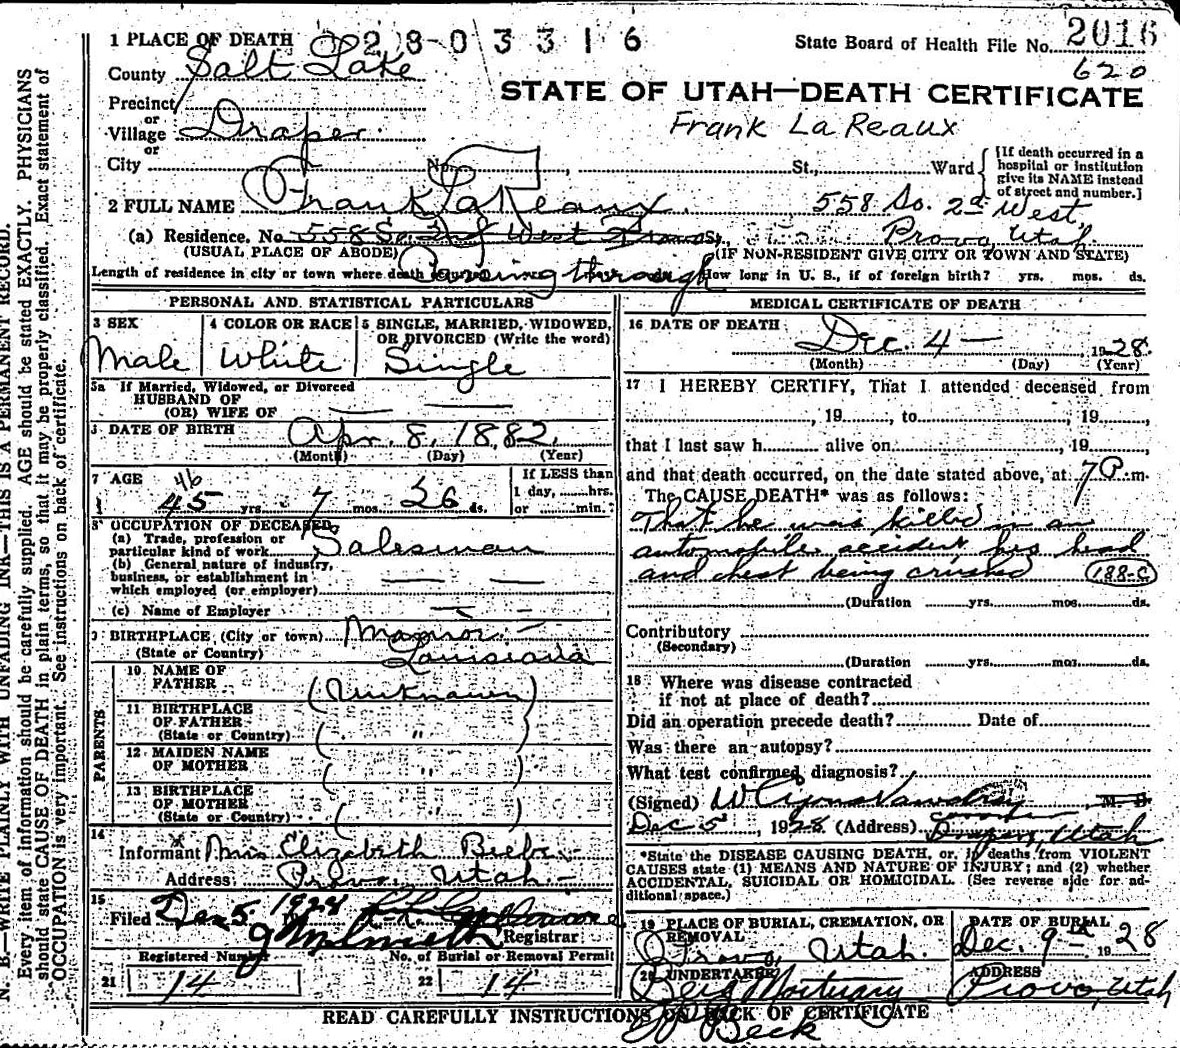 1 PLACE OF DEATH 28-03316
State Board of Health File No. 2016
620
County Salt Lake
STATE OF UTAH—DEATH CERTIFICATE
Precinct
or
Village Draper
or
Frank La Reaux
City No. St., Ward
[If death occurred in a
hospital or institution
give its NAME instead
of street and number.]
2 FULL NAME Frank LaReaux
558 So. 2d West,
(a) Residence. No. 558 So. 2nd West Provo St. Provo, Utah.
(USUAL PLACE OF ABODE) (IF NON-RESIDENT GIVE CITY OR TOWN AND STATE)
Length of residence in city or town where death occurred Passing through How long in U. S., if of foreign birth? yrs. mos. ds.
PERSONAL AND STATISTICAL PARTICULARS
3 SEX
Male
4 COLOR OR RACE
White
5 SINGLE, MARRIED, WIDOWED,
OR DIVORCED (Write the word)
Single
5a If Married, Widowed, or Divorced
HUSBAND OF
(OR) WIFE OF
DATE OF BIRTH Apr. 8, 1882.
(Month) (Day) (Year)
7 AGE 46
45 yrs. 7 mos. 26 ds.
If LESS than
1 day, hrs.
or min.
8 OCCUPATION OF DECEASED
(a) Trade, profession or
particular kind of work Salesman
(b) General nature of industry,
business, or establishment in
which employed (or employer)
(c) Name of Employer
9 BIRTHPLACE (City or town)
(State or Country) Louisiana
PARENTS
10 NAME OF
FATHER (Unknown)
11 BIRTHPLACE
OF FATHER
(State or Country) ( " )
12 MAIDEN NAME
OF MOTHER ( " )
13 BIRTHPLACE
OF MOTHER
(State or Country) ( " )
14
Informant Mrs Elizabeth
Address Provo, Utah
15
Filed Dec 5, 1928
Registrar
Registered Number No. of Burial or Removal Permit
21 14 22 14
MEDICAL CERTIFICATE OF DEATH
16 DATE OF DEATH
Dec. 4 — 1928.
(Month) (Day) (Year)
17 I HEREBY CERTIFY, That I attended deceased from
, 19 , to , 19 ,
that I last saw h alive on , 19
and that death occurred, on the date stated above, at 7 P. m.
The CAUSE DEATH* was as follows:
That he was killed in an
automobile accident his head
and chest being crushed (188-C)
(Duration yrs. mos. ds.
Contributory
(Secondary)
(Duration yrs. mos. ds.
18 Where was disease contracted
if not at place of death?
Did an operation precede death? Date of
Was there an autopsy?
What test confirmed diagnosis?
(Signed) M D
Dec 5, 1928 (Address) Draper, Utah
*State the DISEASE CAUSING DEATH, or, in deaths from VIOLENT
CAUSES state (1) MEANS AND NATURE OF INJURY; and (2) whether
ACCIDENTAL, SUICIDAL OR HOMICIDAL. (See reverse side for ad-
ditional space.)
19 PLACE OF BURIAL, CREMATION, OR
REMOVAL
Provo, Utah.
DATE OF BURIAL
Dec. 9th 1928
20 UNDERTAKER
Berg Mortuary
ADDRESS
Provo, Utah
READ CAREFULLY INSTRUCTIONS ON BACK OF CERTIFICATE
Beck
N. B.—WRITE PLAINLY WITH UNFADING INK—THIS IS A PERMANENT RECORD.
Every item of information should be carefully supplied. AGE should be stated EXACTLY. PHYSICIANS
should state CAUSE OF DEATH in plain terms, so that it may be properly classified. Exact statement of
OCCUPATION is very important. See instructions on back of certificate.